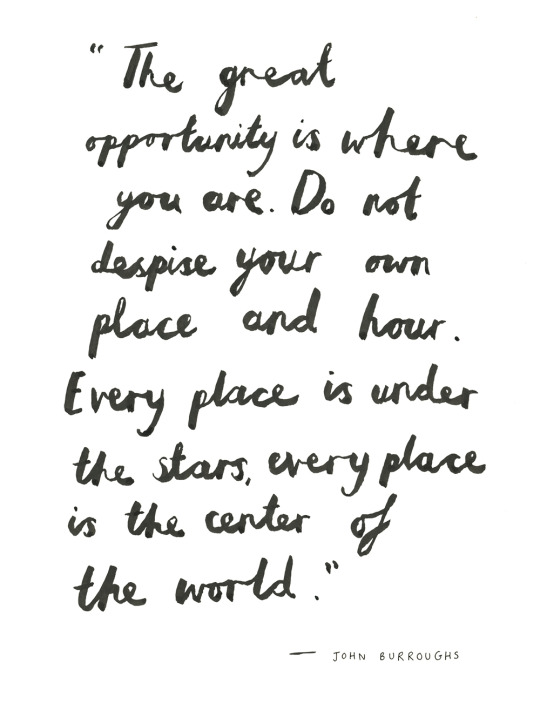 “The great
opportunity is where
you are. Do not
despise your own
place and hour.
Every place is under
the stars, every place
is the center of
the world.”
— JOHN BURROUGHS